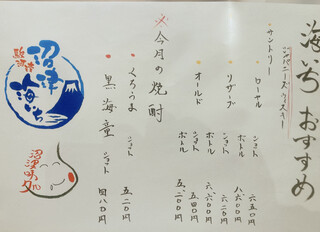 海いち おすすめ
ジャパニーズウイスキー
サントリー
・ローヤル ショット 六五〇円
ボトル 八六〇〇円
・リザーブ ショット 六二〇円
ボトル 六、六〇〇円
・オールド ショット 五四〇円
ボトル 五、二〇〇円
今月の焼酎
・くろうま ショット 五二〇円
・黒海童 ショット 四八〇円
沼津
海いち
沼津